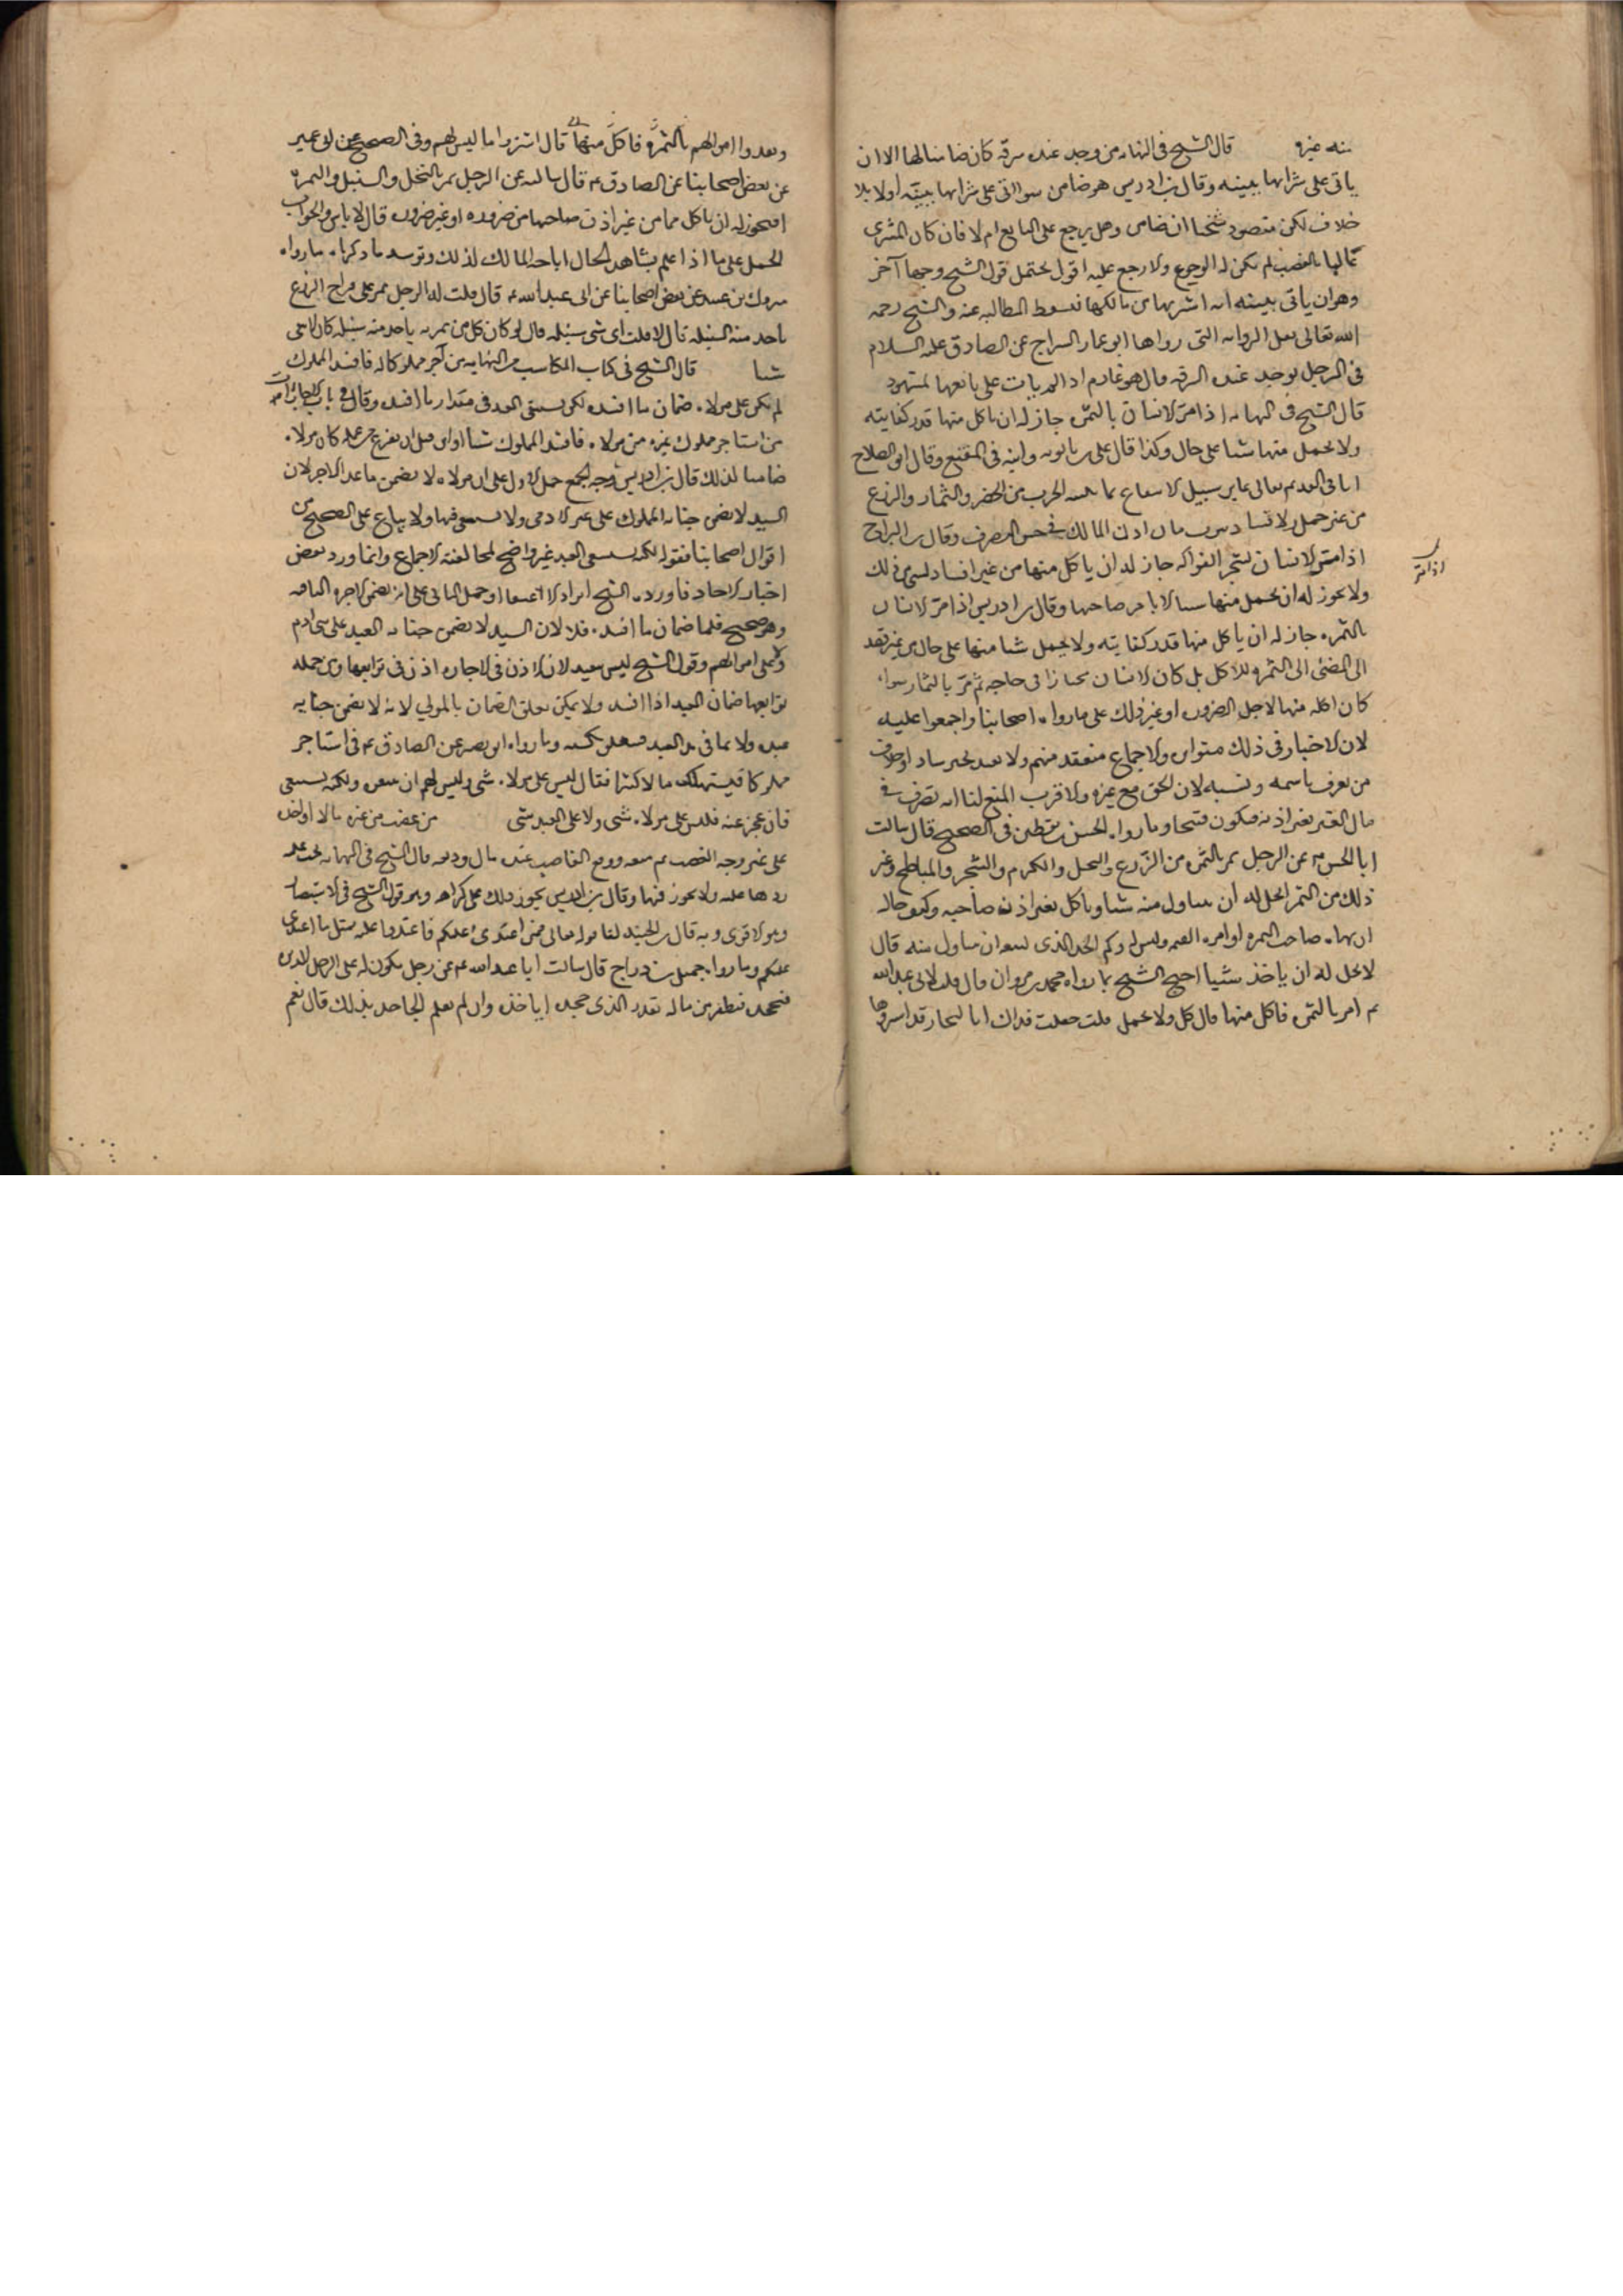 منه غيره قال الشيخ في النهاية من وجد عنده سرقة كان ضامنا لها الا ان
ياتي على شرائها ببينة وقال بن ادريس هو ضامن سوا اتى على شرائها ببينة اولا بلا
خلاف لكن مقصود شيخنا انه ضامن وهل يرجع على البايع ام لا فان كان المشتري
عالما بالغصب لم يكن له الرجوع ولا رجع عليه اقول يحتمل قول الشيخ وجها آخر
وهو ان ياتي ببينة انه اشتريها من مالكها فيسقط المطالبة عنه والشيخ رحمه
الله تعالى نقل الرواية التي رواها ابو عمار السراج عن الصادق عليه السلام
في الرجل يوجد عنده السرقة قال هو غارم اذا لم يات على بائعها بشهود
قال الشيخ في النهاية اذا مر الانسان بالثمرة جاز له ان ياكل منها قدر كفايته
ولا يحمل منها شيا على حال وكذا قال علي بن بابويه وابنه في المقنع وقال ابو الصلاح
تعالى عابر سبيل الانتفاع بما الحرث من الخضر والثمار والزرع
من غير حمل ولا افساد اذن المالك في حسن التصرف وقال بن البراج
اذا مر الانسان بشجر الفواكه جاز له ان ياكل منها من غير افساد لشي من ذلك
ولا يجوز له ان يحمل منها شيا الا بامر صاحبها وقال بن ادريس اذا مر الانسان
بالثمرة جاز له ان ياكل منها قدر كفايته ولا يحمل شيا منها على حال من غير قصد
الى المضي الى الثمرة للاكل بل كان الانسان مجتازا في حاجة ثم مر بالثمار سواء
كان اكله منها لاجل الضرورة او غير ذلك على ما رواه اصحابنا واجمعوا عليه
لان الاخبار في ذلك متواترة والاجماع منعقد منهم ولا يعتد بخبر شاذ او خلاف
من يعرف باسمه ونسبه لان الحق مع غيره والاقرب المنع لنا انه تصرف في
مال الغير بغير اذنه فيكون قبيحا وما رواه الحسن بن يقطين في الصحيح قال سالت
ابا الحسن ع عن الرجل يمر بالثمرة من الزرع والنخل والكرم والشجر والمباطخ وغير
ذلك من الثمر ايحل له ان يتناول منه شيا وياكل بغير اذن صاحبه وكيف حاله
ان نهاه صاحب الثمرة او امره القيم وليس له وكم الحد الذي يسعه ان يتناول منه قال
لا يحل له ان ياخذ شيئا احتج الشيخ بما رواه محمد بن مروان قال قلت لابي عبد الله
ع امر بالثمرة فاكل منها قال كل ولا تحمل قلت جعلت فداك ان التجار قد اشتروها
اذا مر
ونقدوا اموالهم بالثمرة فاكل منها قال اشتروا ما ليس لهم وفي الصحيح عن ابي عمير
عن بعض اصحابنا عن الصادق ع قال سالته عن الرجل يمر بالنخل والسنبل والثمرة
افيجوز له ان ياكل منها من غير اذن صاحبها من ضرورة او غير ضرورة قال لا باس والجواب
الحمل على ما اذا علم بشاهد الحال اباحة المالك لذلك ويؤيده ما ذكرناه ما رواه
مروك بن عبيد عن بعض اصحابنا عن ابي عبد الله ع قال قلت له الرجل يمر على قراح الزرع
ياخذ منه السنبلة قال لا قلت اي شي سنبلة قال لو كان كل من يمر به ياخذ منه سنبلة كان لا يبقى
شيا قال الشيخ في كتاب المكاسب من النهاية من آجر مملوكا له فافسد المملوك
لم يكن على مولاه ضمان ما افسده لكن يستسعى العبد في مقدار ما افسده وقال في باب الاجارات
من استاجر مملوك غيره من مولاه فافسد المملوك شيا او ابق قبل ان يفرغ من عمله كان مولاه
ضامنا لذلك قال بن ادريس وجه الجمع حمل الاول على ان مولاه لا يضمن ما عدا الاجر لان
السيد لا يضمن جناية المملوك على غير الادمي ولا يستسعى فيها ولا يباع على الصحيح من
اقوال اصحابنا فقوله لكنه يستسعى العبد غير واضح لمخالفته الاجماع وانما ورد بعض
اخبار الاحاد فاورده الشيخ ايرادا لا اعتقادا وحمل الثاني على انه يضمن الاجرة الباقية
وهو صحيح فلما ضمان ما افسده فلا لان السيد لا يضمن جناية العبد على بني ادم
وعلى اموالهم وقول الشيخ ليس ببعيد لان الاذن في الاجارة اذن في توابعها ومن جملة
توابعها ضمان العبد اذا افسد ولا يمكن تعلق الضمان بالمولى لانه لا يضمن جناية
عبده ولا بما في يد العبد فيتعلق بكسبه وما رواه ابو بصير عن الصادق ع في استاجر
مملوكا فيستهلك مالا كثيرا فقال ليس على مولاه شي وليس لهم ان يبيعوه ولكنه يستسعى
فان عجز عنه فليس على مولاه شي ولا على العبد شي من غصب من غيره مالا او اخذه
على غير وجه الغصب ثم منعه ووقع الغاصب عنده مال وديعة قال الشيخ في النهاية يجب عليه
ردها عليه ولا يجوز فيها وقال بن ادريس يجوز ذلك على كراهة وهو قول الشيخ في الاستبصار
وهو الاقوى وبه قال بن الجنيد لنا قوله تعالى فمن اعتدى عليكم فاعتدوا عليه بمثل ما اعتدى
عليكم وما رواه جميل بن دراج قال سالت ابا عبد الله ع عن رجل يكون له على الرجل الدين
فيجحده فيظفر من ماله بقدر الذي جحده اياخذه وان لم يعلم الجاحد بذلك قال نعم